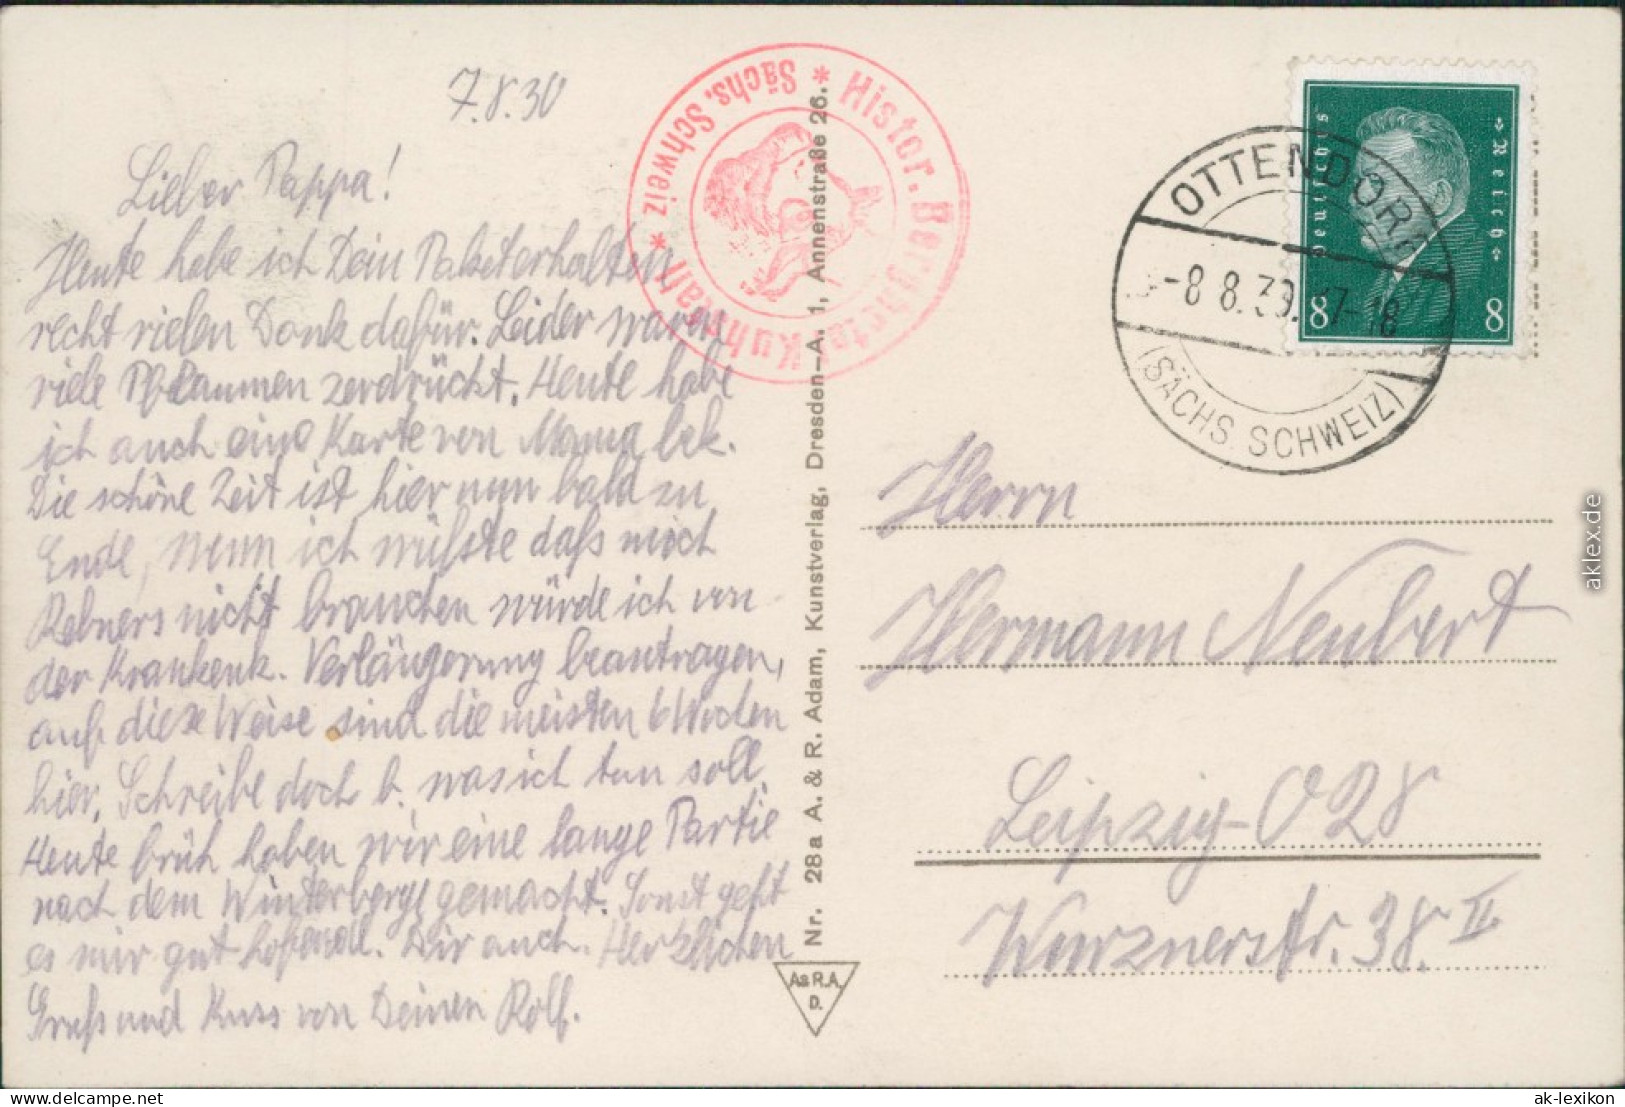 7.8.30
Lieber Pappa!
Heute habe ich Dein Paket erhalten
recht vielen Dank dafür. Leider waren
viele Pflaumen zerdrückt. Heute habe
ich auch eine Karte von Mama bek.
Die schöne Zeit ist hier nun bald zu
Ende, Wenn ich wüßte daß mich
Rebners nicht brauchen würde ich von
der Krankenk. Verlängerung beantragen,
auf diese Weise sind die meisten 6 Wochen
hier. Schreibe doch b. was ich tun soll.
Heute früh haben wir eine lange Partie
nach dem Winterberg gemacht. Sonst geht
es mir gut hoffendl. Dir auch. Herzlichen
Gruß und Kuss von Deinen Rolf.
* Histor. Berghotel Kuhstall *
Sächs. Schweiz
Nr. 28 a A. & R. Adam, Kunstverlag, Dresden-A. 1, Annenstraße 26.
A&R.A.
D.
Deutsches Reich
8 8
OTTENDORF
-8.8.30.17-18
(SÄCHS. SCHWEIZ)
Herrn
Hermann Neubert
Leipzig-O 28
Wurznerstr. 38. II
aklex.de
oldthing.de
ak-lexikon